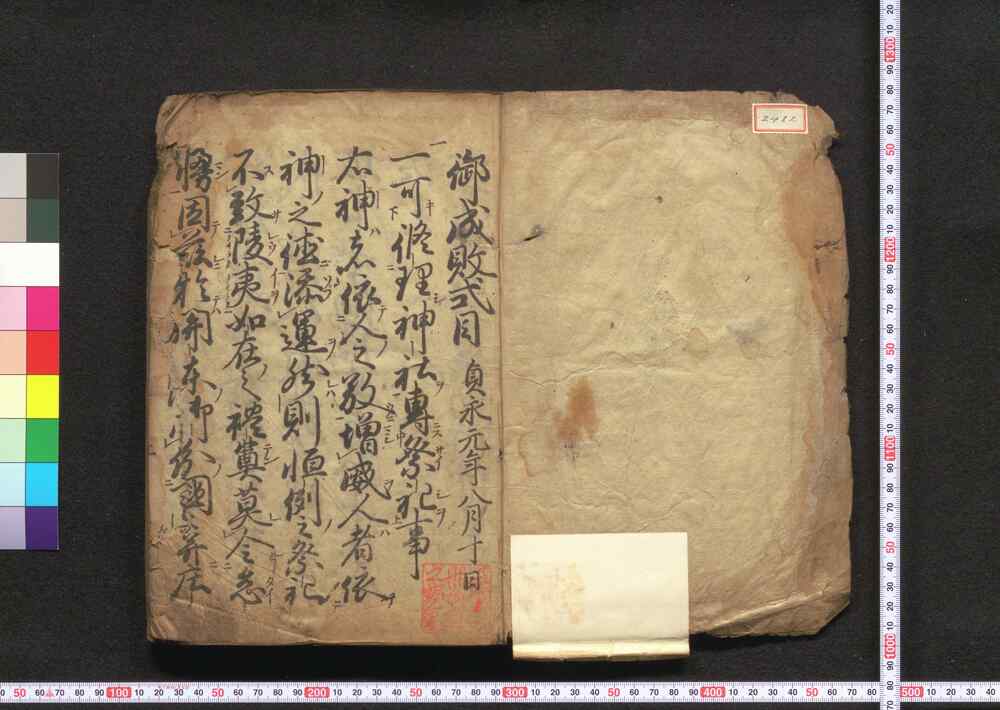 2482
御成敗式目 貞永元年八月十日
一可修理神社專祭祀事
右神者依人之敬增威人者依
神之德添運然則恒例之祭祀
不致陵夷如在之禮奠莫令怠
慢因茲於關東御分國々并庄